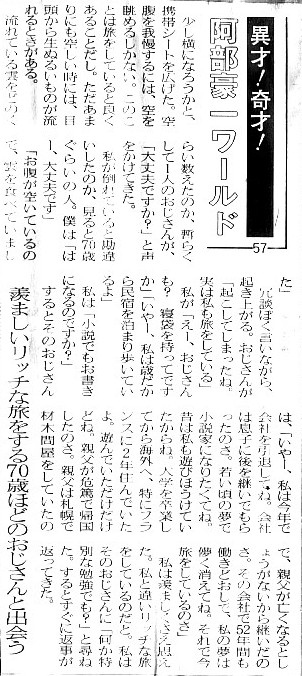 異才!奇才!
阿部豪一ワールド
57
少し横になろうかと、
携帯シートを広げた。空
腹を我慢するには、空を
眺めるしかない。このこ
とは旅をしていると良く
あることだし。ただあま
りにも空しい時には、目
頭から生ぬるいものが流
れるときがある。
流れている雲をどのく
らい数えたのか、暫らく
して1人のおじさんが、
「大丈夫ですか?」と声
をかけてきた。
私が倒れていると勘違
いしたのか、見ると70歳
ぐらいの人。僕は「は
ー、大丈夫です」
「お腹が空いているの
で、雲を食べていまし
た」
冗談ぽく言いながら、
起き上がる。おじさんが
「起こしてしまったね。
実は私も旅をしている」
私が「えー、おじさん
も? 寝袋を持ってです
か」「いやー、私は歳だか
ら民宿を泊まり歩いてい
るよ」
私は「小説でもお書き
になるのですか?」
するとそのおじさん
は、「いやー、私は今年で
会社を引退してね。会社
は息子に後を継いでもら
ったのさ。若い頃の夢で
小説家になりたくてね。
昔は私も遊びほうけてい
たからね。大学を卒業し
てから海外へ、特にフラ
ンスに2年住んでいた
よ。遊んでいただけだけ
どね。親父が危篤で帰国
したのさ。親父は札幌で
材木問屋をしていたの
で、親父が亡くなるとし
ょうがないから継いだの
さ。その会社で52年間も
働きどおして、私の夢は
儚く消えてね。それで今
旅をしているのさ」
私は羨ましくさえ思え
た。私と違いリッチな旅
をしているのだと。私は
そのおじさんに「何か特
別な勉強でも?」と尋ね
た。するとすぐに返事が
返ってきた。
羨ましいリッチな旅をする70歳ほどのおじさんと出会う